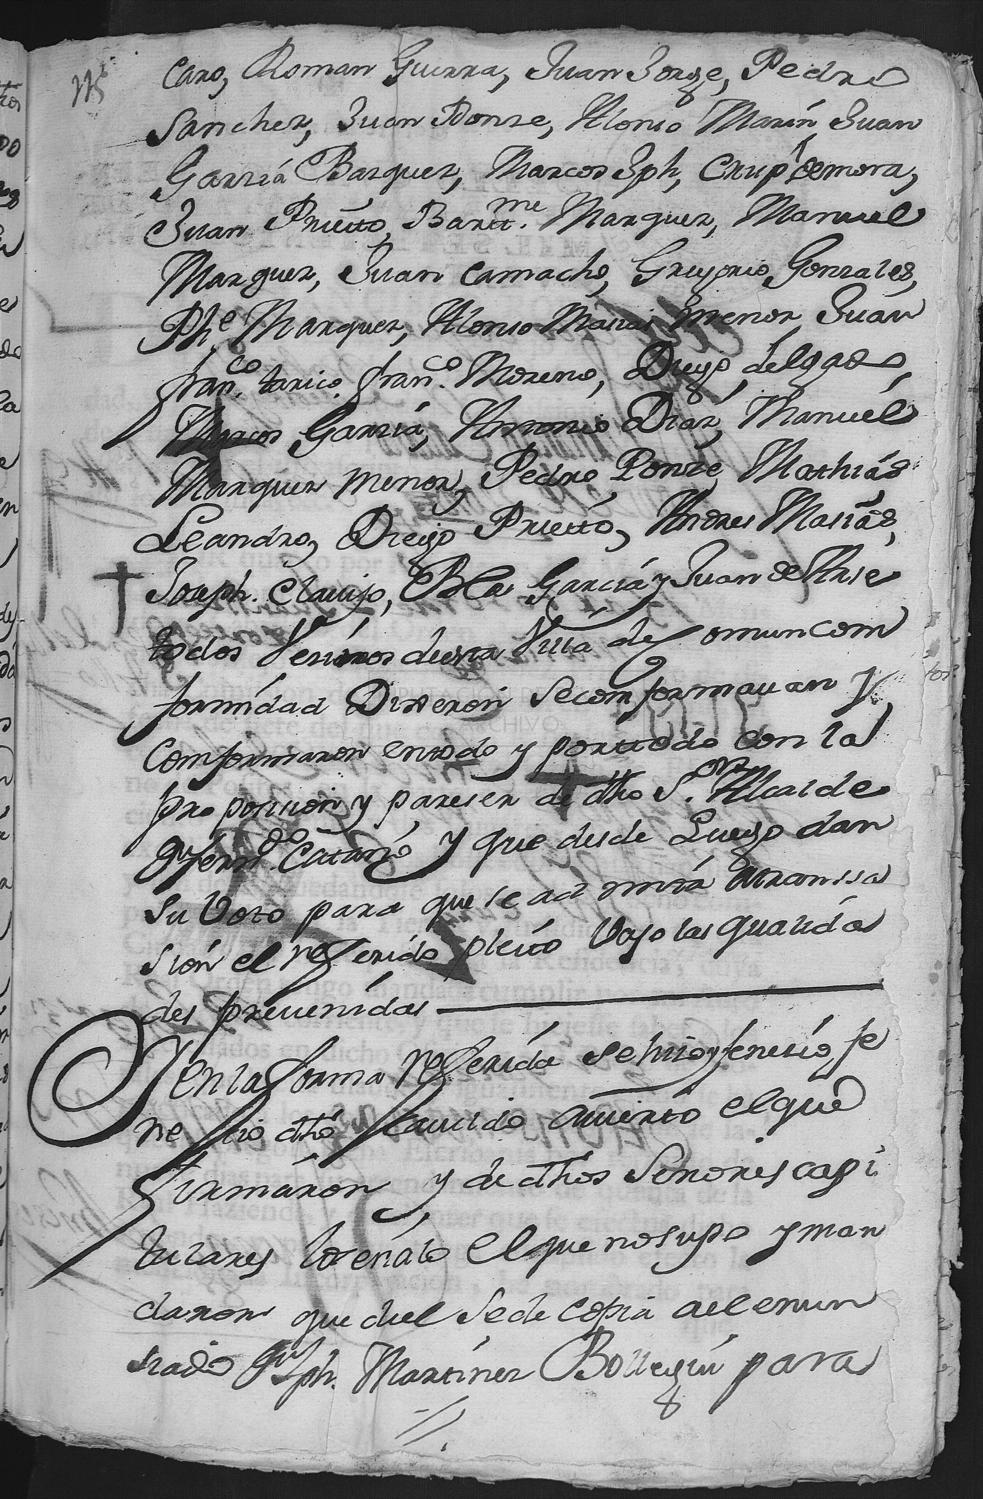 Caro, Roman Guerra, Juan Jorge, Pedro
Sanches, Juan Ponze, Alonso Marin, Juan
Garzia Basques, Marcos Jph,
Juan Prieto, Bart.me Marques, Manuel
Marques, Juan Camacho, Gregorio Gonzales,
Phe Marques, Alonso Masias menor, Juan
fran.co tarico, fran.co Moreno, Diego delgado,
Marcos Garzia, Antonio Diaz, Manuel
Marques menor, Pedro Ponze, Mathias
Leandro, Diego Prietto, Andres Masias,
Joseph Clavijo, Blas Garcia y Juan de
todos Vezinos de esta Villa de comun com
formidad Dixeron se comformavan y
comformaron en todo y por ttodo con la
proposision y pareser de dho S.or Alcalde
Dn fern.do Cataño y que desde Luego dan
su Voto para que se admita atranssa
sion el referido pleito vajo las qualida
des prevenidas
En la forma referida se hizo y fenecio fe
ne sio dho Cavildo avierto el que
firmaron y de dhos Señores capi
tulares lo señalo el que no supo y man
daron que del se de copia al enun
siado Dn Jph. Martines Bollegui para